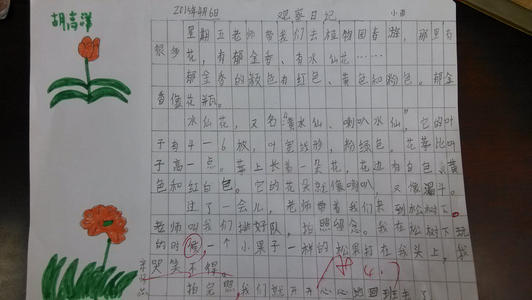 胡高洋
2015年4月6日 观察日记 小雨
星期五老师带我们去植物园春游，那里有
很多花，有郁金香、有水仙花……
郁金香的颜色有红色、黄色和粉色。郁金
香像花瓶。
水仙花，又名“黄水仙、喇叭水仙，”它的叶
子有4－6放，叶宽线形，粉绿色，花茎比叶
子高一点。茎上长着一朵花，花边有白色、黄
色和红白色。它的花朵就像喇叭，又像漏斗。
过了一会儿，老师带着我们来到松树下。
老师叫我们排好队，拍照留念。我在松树下玩
的时候，一个小果子一样的松果打在我头上，我
哭笑不得。
拍完照，我们就开开心心地回班去了。